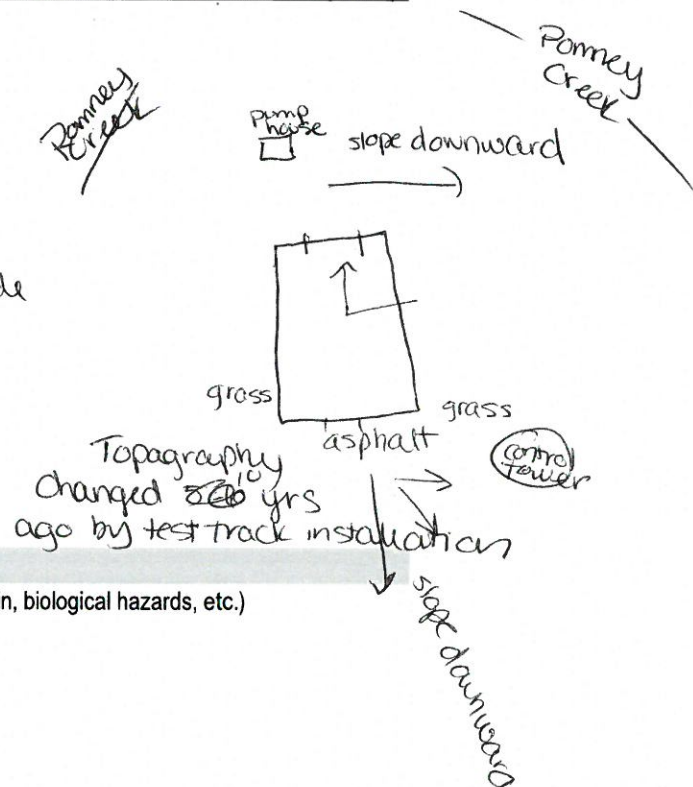 Romney
Creek
Romney
Creek
pump
house
slope downward
grass
grass
asphalt
control
Tower
Topagraphy
Changed 10 yrs
ago by test track installation
in, biological hazards, etc.)
slope downward